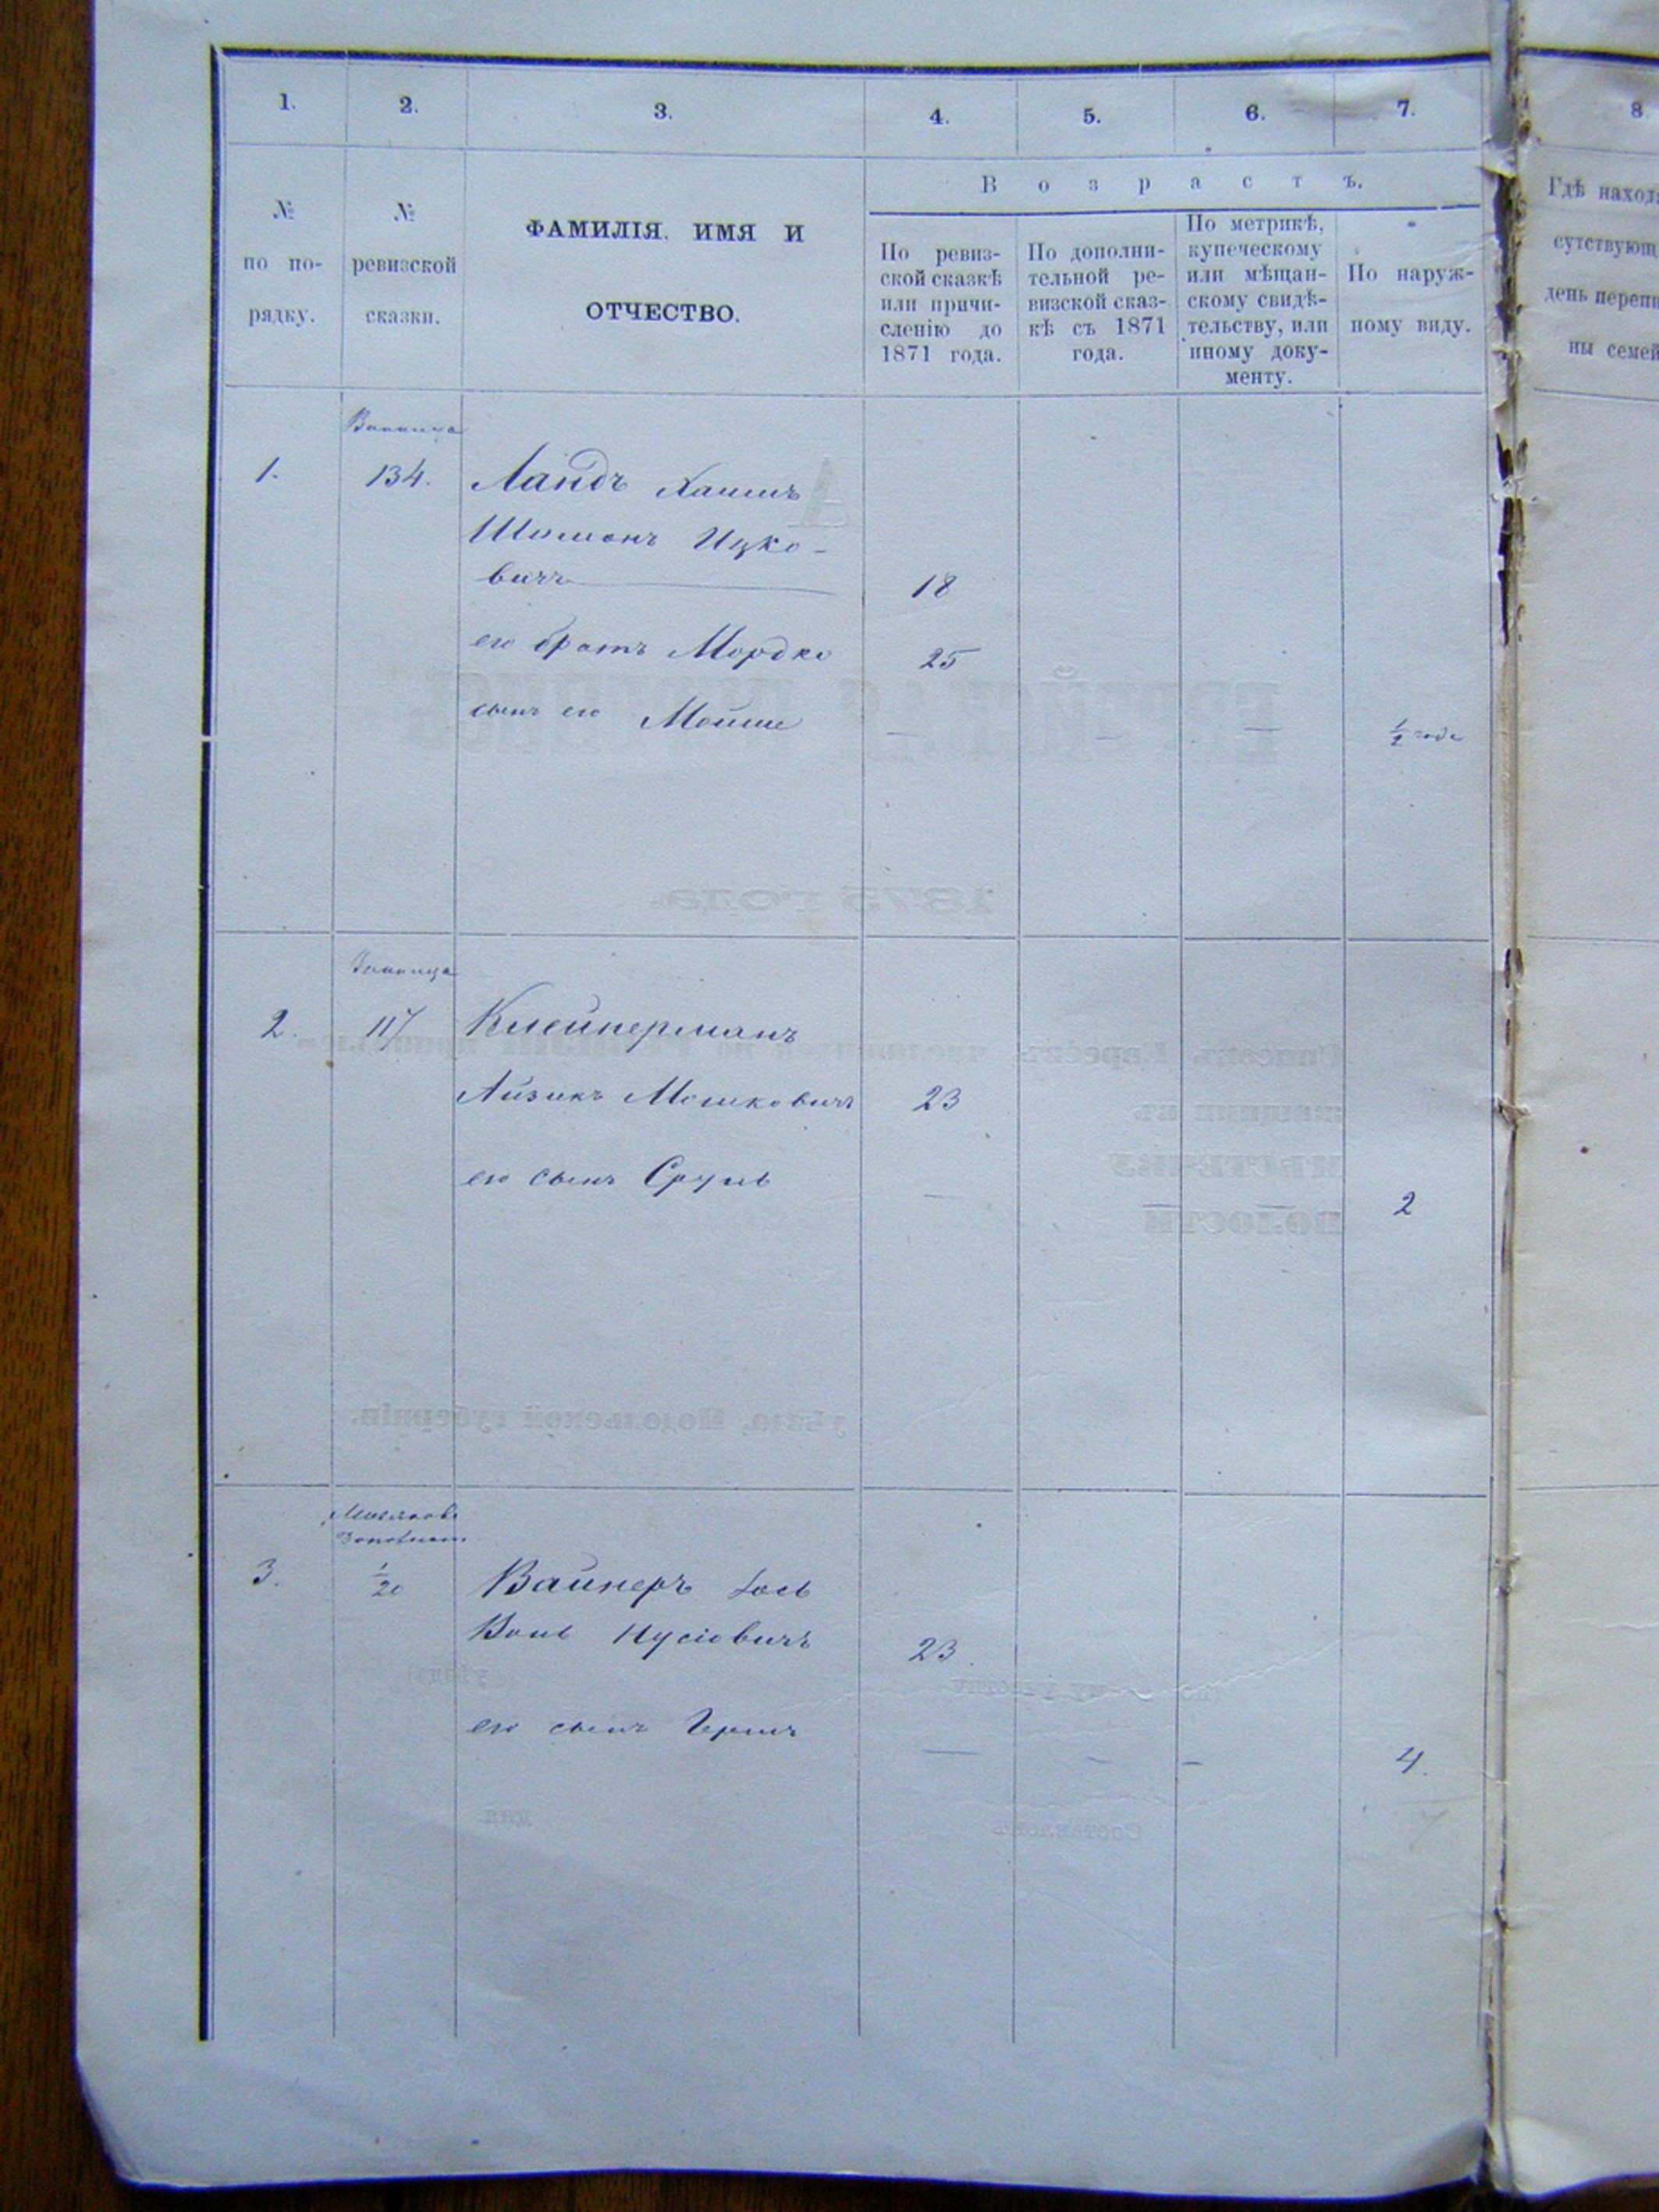 1.
2.
3.
4.
5.
6.
7.
8
№
по по-
рядку.
№
ревизской
сказки.
ФАМИЛІЯ, ИМЯ И
ОТЧЕСТВО.
Возрастъ.
По ревиз-
ской сказкѣ
или причи-
сленію до
1871 года.
По дополни-
тельной ре-
визской сказ-
кѣ съ 1871
года.
По метрикѣ,
купеческому
или мѣщан-
скому свидѣ-
тельству, или
иному доку-
менту.
По наруж-
ному виду.
Гдѣ наход
сутствующ
день переп
ны семей
Винница
1.
134.
Ландъ Хаимъ
Шимонъ Ицко-
вичъ
18
его братъ Мордко
25
сынъ его Мойше
— — — ½ года
Винница
2.
117
Клейнерманъ
Айзикъ Мошковичъ
23
его сынъ Сруль
— — — 2
3.
1/20
Вайнеръ Іось
Волъ Нусіовичъ
23
его сынъ Гершъ
— — — 4.